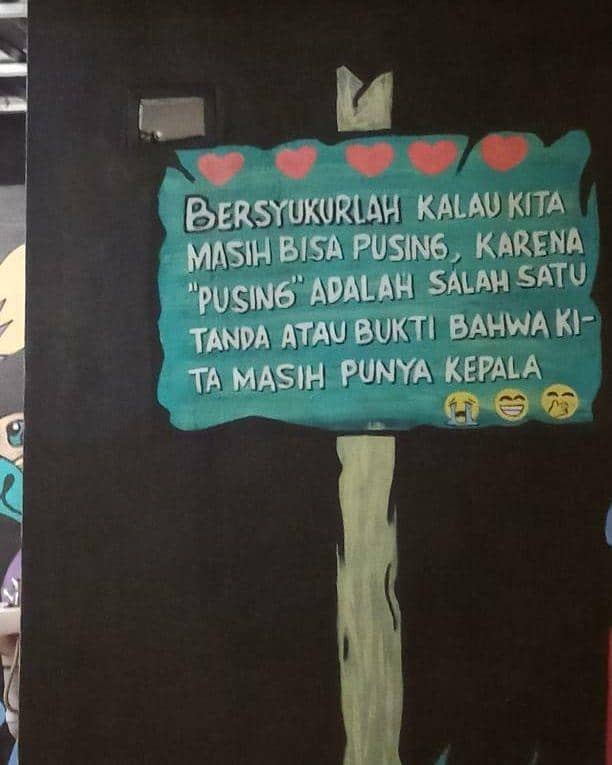 BERSYUKURLAH KALAU KITA
MASIH BISA PUSING, KARENA
"PUSING" ADALAH SALAH SATU
TANDA ATAU BUKTI BAHWA KI-
TA MASIH PUNYA KEPALA